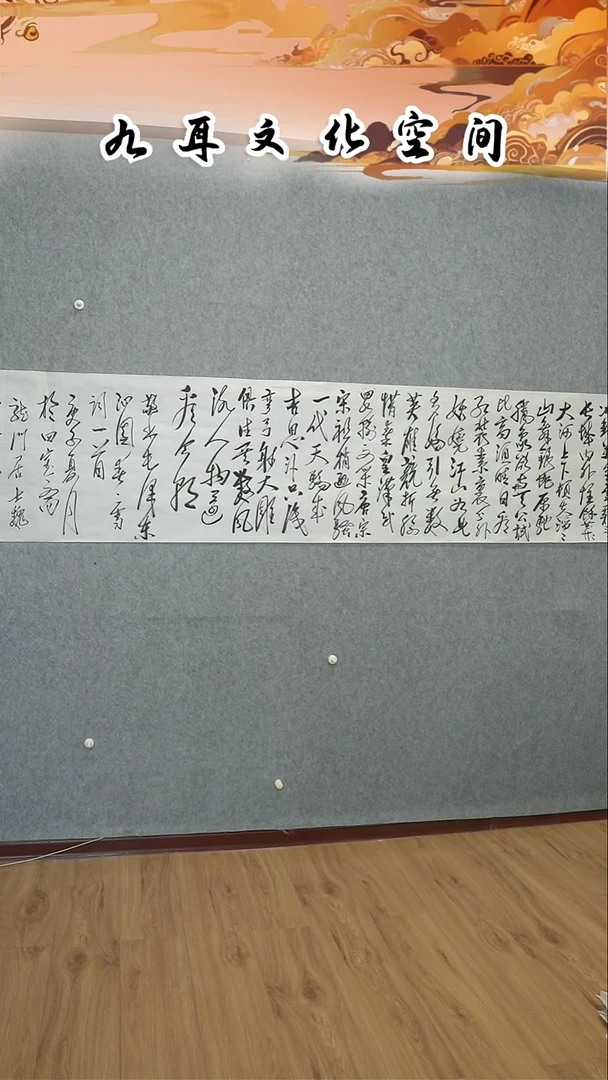 九耳文化空间
长城内外惟余莽
大河上下顿失滔滔
山舞银蛇原驰
腊象欲与天公试
比高须晴日看
红装素裹分外
妖娆江山如此
多娇引无数
英雄竞折腰
惜秦皇漢武
略输文采唐宗
宋祖稍逊风骚
一代天骄成
吉思汗只識
弯弓射大雕
俱往矣数风
流人物还
看今朝
敬书毛泽东
沁园春雪
词一首
庚子夏月
於四实斋
龍门居士魏